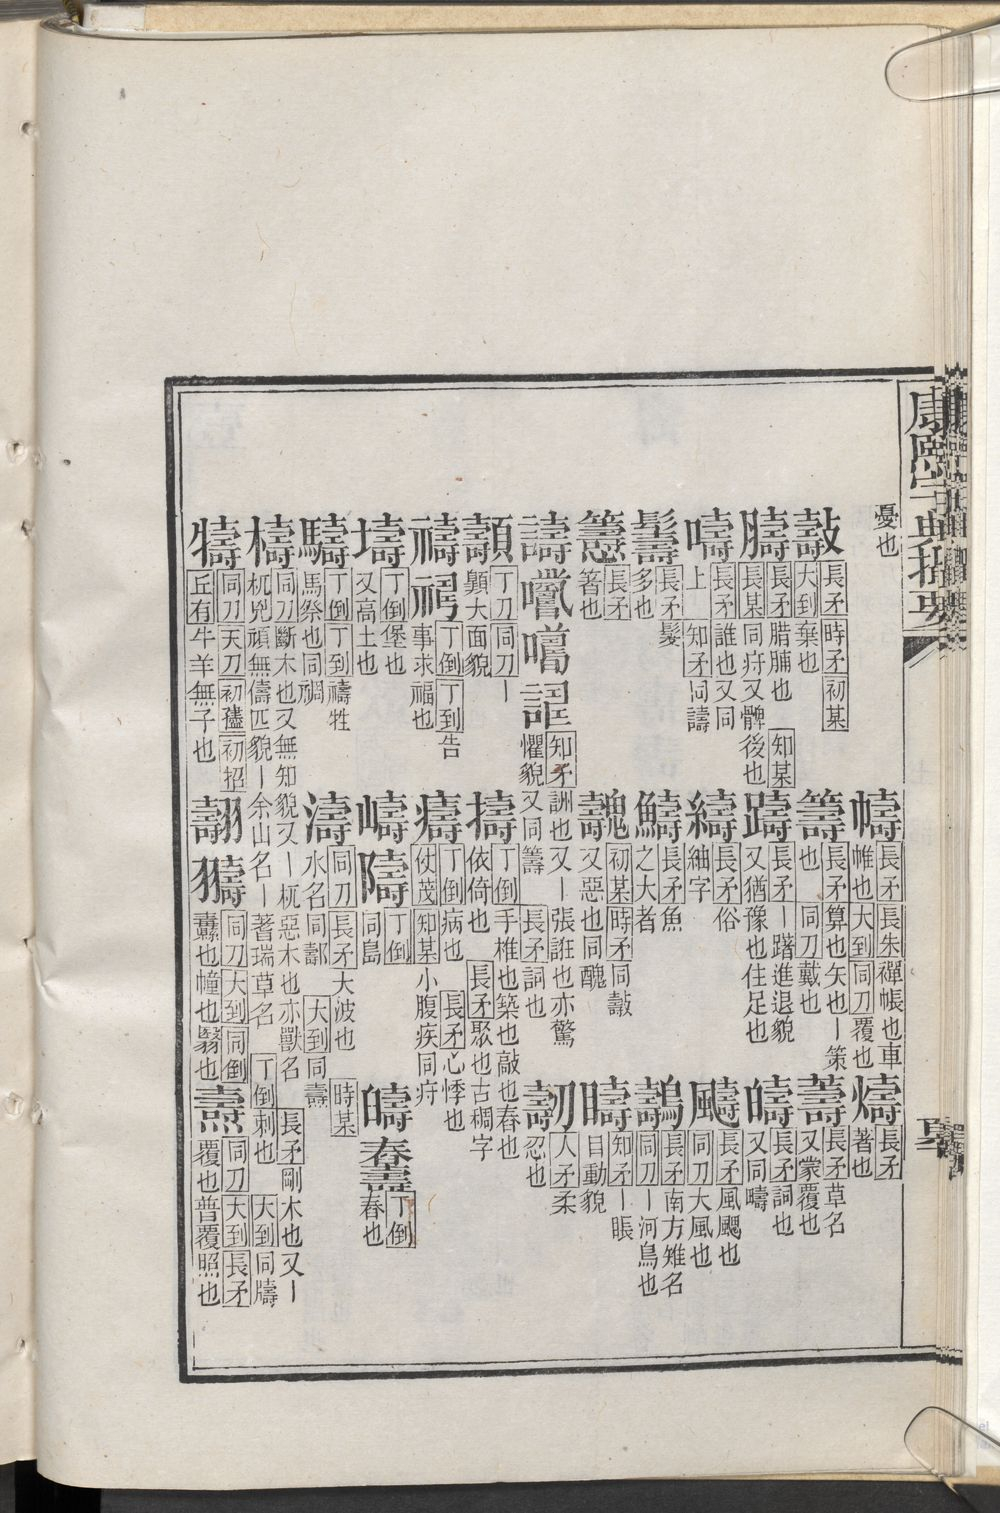 康熙字典撮要
憂也 幬 長矛 長朱 襌帳也車帷也 大到 同刀 覆也 燽 長矛 著也
長矛 時矛 初某 大到 棄也 籌 長矛 算也矢也丨策也 同刀 戴也 薵 長矛 草名又蒙覆也
長矛 腊腩也 知某 長某 同疛又髀後也 躊 長矛 丨躇進退貌又猶豫也住足也 長矛 詞也又同疇
嚋 長矛 誰也又同上 知矛 同譸 長矛 俗紬字 長矛 風颸也 同刀 大風也
長矛 髮多也 長矛 魚之大者 長矛 南方雉名 同刀 丨河鳥也
長矛 箸也 魗 初某 時矛 又惡也同醜 知矛 丨賬目動貌
譸 知矛 詶也又丨張誑也亦驚懼貌又同籌 長矛 詞也 人矛 柔忍也
丁刀 同刀 丨顤大面貌 擣 丁倒 手椎也築也敲也舂也依倚也 長矛 聚也古稠字
禱 丁倒 丁到 告事求福也 丁倒 病也 長矛 心悸也 仗茂 知某 小腹疾同疛
壔 丁倒 堡也又高土也 嶹 隯 丁倒 同島 丁倒 舂也
丁倒 丁到 禱牲馬祭也同禂 濤 同刀 長矛 大波也 時某 水名同 大到 同燾
檮 同刀 斷木也又無知貌又丨杌惡木也亦獸名 長矛 剛木也又丨杌兇頑無儔匹貌丨余山名丨蓍瑞草名 丁倒 刺也 大到 同
同刀 天刀 初招 丘有 牛羊無子也 翿 同刀 大到 同倒 纛也幢也翳也 燾 同刀 大到 長矛 覆也普覆照也